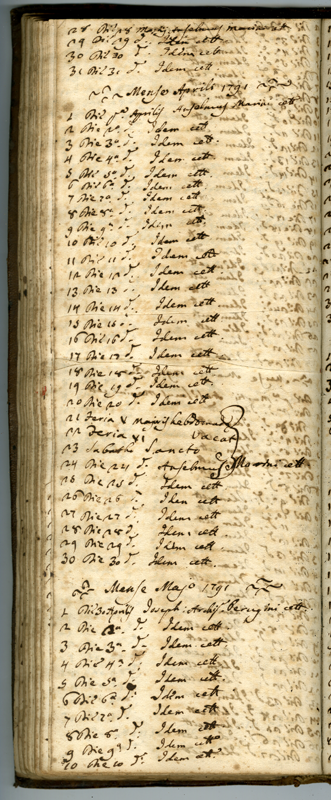 28 Die 28 Martij Anselmus Marini cett
29 Die 29 d. Idem cett
30 Die 30 d. Idem cett
31 Die 31 d. Idem cett
Mense Aprili 1791
1 Die pa Aprilis Anselmus Marini cett
2 Die 2a d. Idem cett
3 Die 3a d. Idem cett
4 Die 4a d. Idem cett
5 Die 5a d. Idem cett
6 Die 6a d. Idem cett
7 Die 7a d. Idem cett
8 Die 8a d. Idem cett
9 Die 9a d. Idem cett
10 Die 10 d. Idem cett
11 Die 11 d. Idem cett
12 Die 12 d. Idem cett
13 Die 13 d. Idem cett
14 Die 14 d. Idem cett
15 Die 15 d. Idem cett
16 Die 16 d. Idem cett
17 Die 17 d. Idem cett
18 Die 18 d. Idem cett
19 Die 19 d. Idem cett
20 Die 20 d. Idem cett
21 Feria V majoris hebdomadae
22 Feria VI vacat
23 Sabatho Sancto
24 Die 24 d. Anselmus Marini cett
25 Die 25 d. Idem cett
26 Die 26 d. Idem cett
27 Die 27 d. Idem cett
28 Die 28 d. Idem cett
29 Die 29 d. Idem cett
30 Die 30 d. Idem cett
Mense Majo 1791
1 Joseph Perugini cett
2 Die 2a d. Idem cett
3 Die 3a d. Idem cett
4 Die 4a d. Idem cett
5 Die 5a d. Idem cett
6 Die 6a d. Idem cett
7 Die 7a d. Idem cett
8 Die 8a d. Idem cett
9 Die 9a d. Idem cett
10 Die 10 d. Idem cett